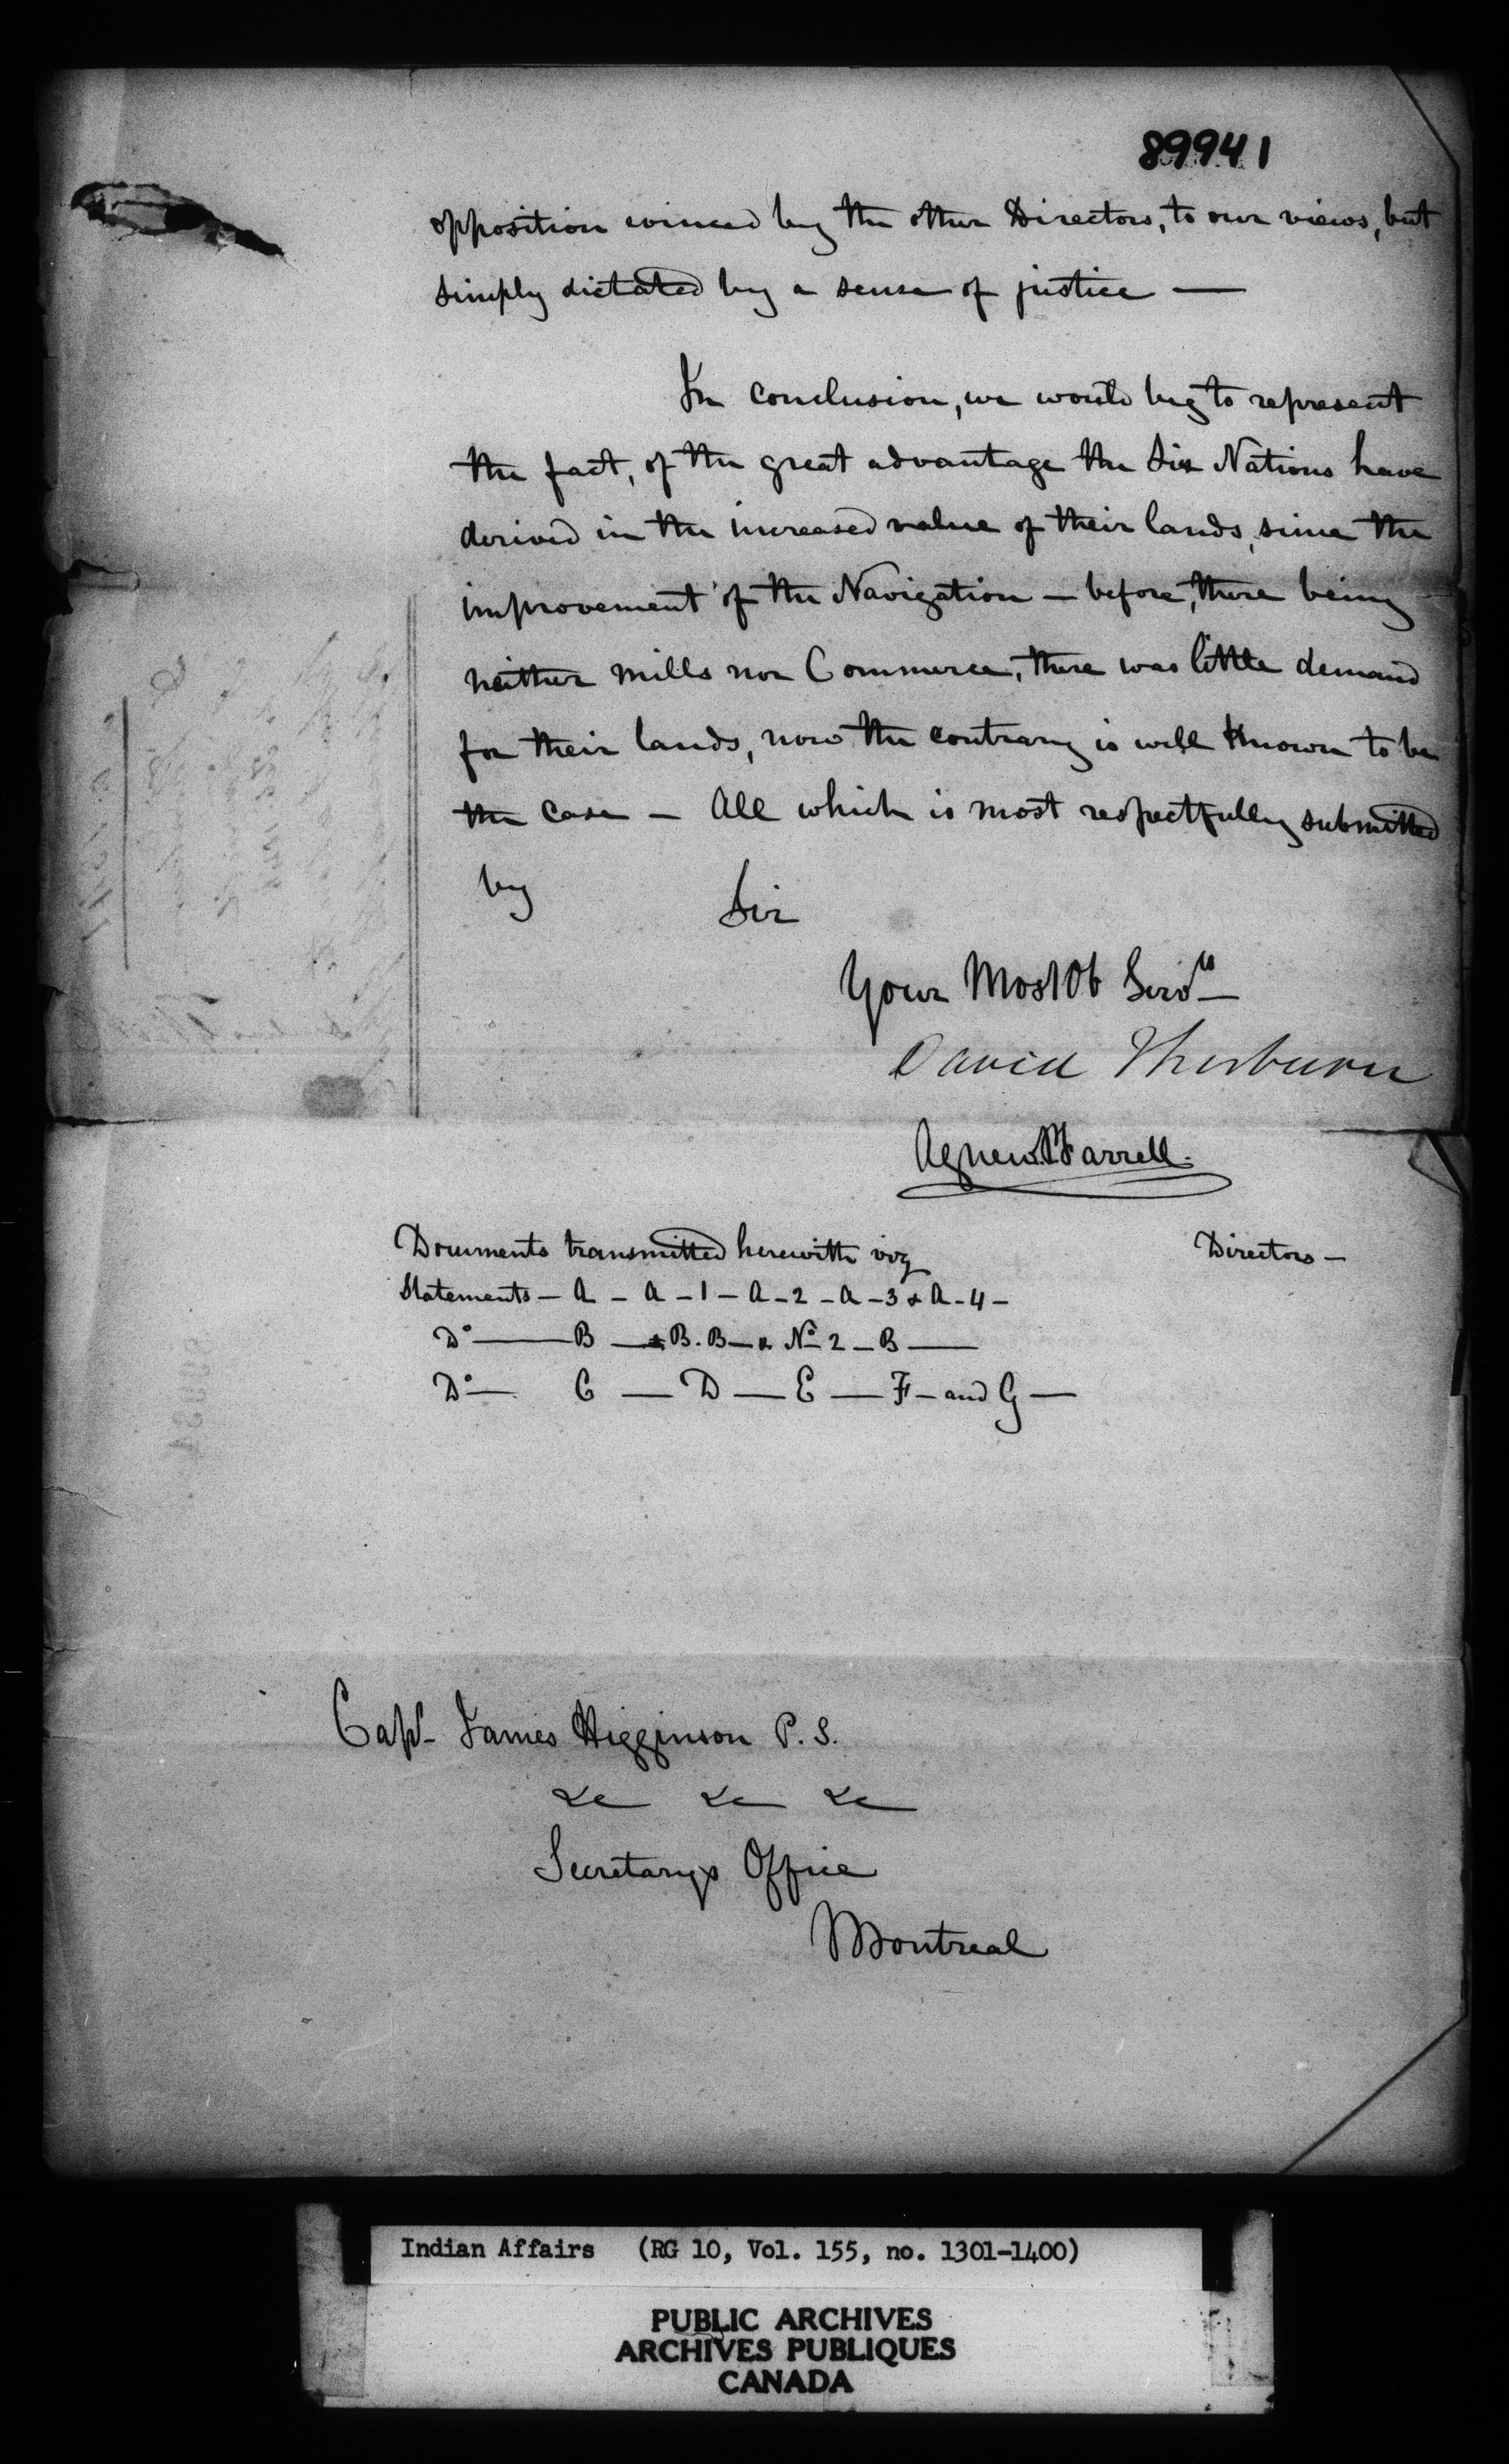 89941
opposition evinced by the other Directors, to our views, but
simply dictated by a sense of justice —
In conclusion, we would beg to represent
the fact, of the great advantage the Six Nations have
derived in the increased value of their lands, since the
improvement of the Navigation — before, there being
neither mills nor Commerce, there was little demand
for their lands, now the contrary is well known to be
the case — All which is most respectfully submitted
by Sir
Your Most Ob Servts —
David Thorburn
Agnew P. Farrell.
Directors —
Documents transmitted herewith viz
Statements — A — A — 1 — A — 2 — A — 3 & A — 4 —
Do — B — & B. B — & No 2 — B —
Do — C — D — E — F — and G —
Capt James Higginson P. S.
&c &c &c
Secretarys Office
Montreal
Indian Affairs (RG 10, Vol. 155, no. 1301-1400)
PUBLIC ARCHIVES
ARCHIVES PUBLIQUES
CANADA